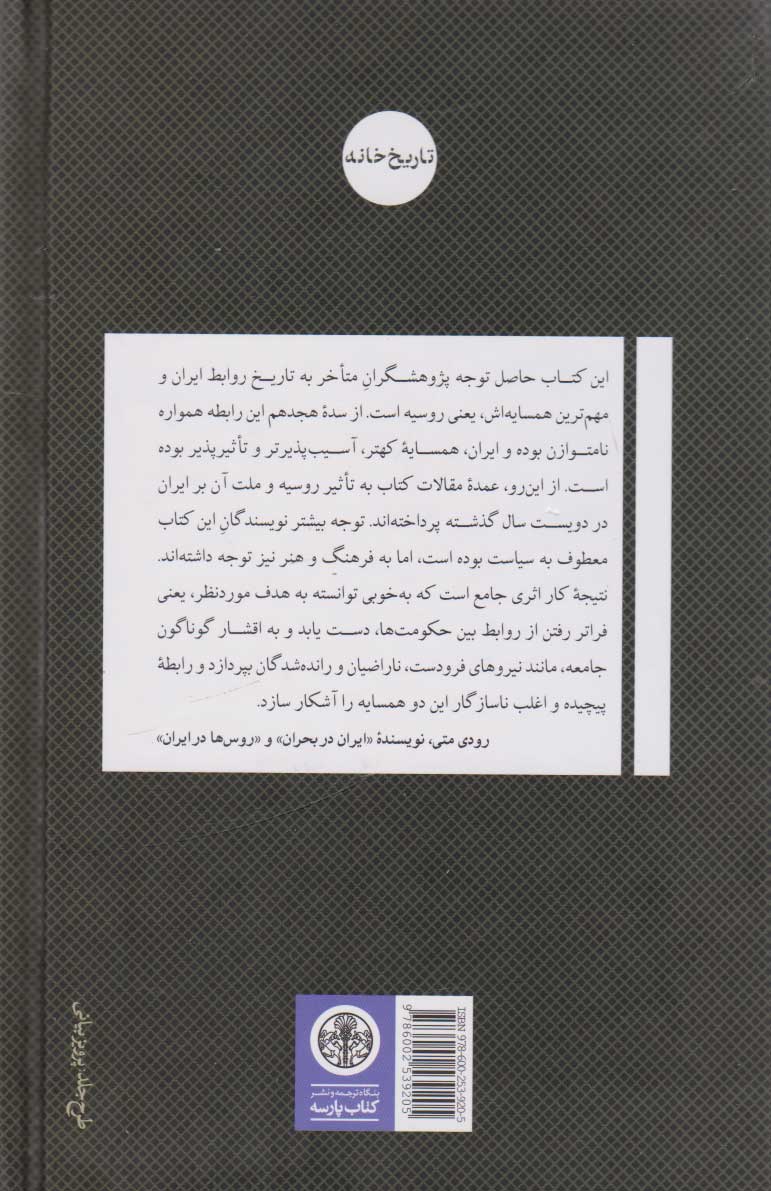 تاریخ‌خانه
این کتاب حاصل توجه پژوهشگرانِ متأخر به تاریخ روابط ایران و
مهم‌ترین همسایه‌اش، یعنی روسیه است. از سدهٔ هجدهم این رابطه همواره
نامتوازن بوده و ایران، همسایهٔ کهتر، آسیب‌پذیرتر و تأثیرپذیر بوده
است. از این‌رو، عمدهٔ مقالات کتاب به تأثیر روسیه و ملت آن بر ایران
در دویست سال گذشته پرداخته‌اند. توجه بیشتر نویسندگانِ این کتاب
معطوف به سیاست بوده است، اما به فرهنگ و هنر نیز توجه داشته‌اند.
نتیجهٔ کار اثری جامع است که به‌خوبی توانسته به هدف موردنظر، یعنی
فراتر رفتن از روابط بین حکومت‌ها، دست یابد و به اقشار گوناگون
جامعه، مانند نیروهای فرودست، ناراضیان و رانده‌شدگان بپردازد و رابطهٔ
پیچیده و اغلب ناسازگار این دو همسایه را آشکار سازد.
رودی متی، نویسندهٔ «ایران در بحران» و «روس‌ها در ایران»
بنگاه ترجمه و نشر
کتاب پارسه
ISBN 978-600-253-920-5
9 786002 539205
طرح جلد: پرویز بیانی